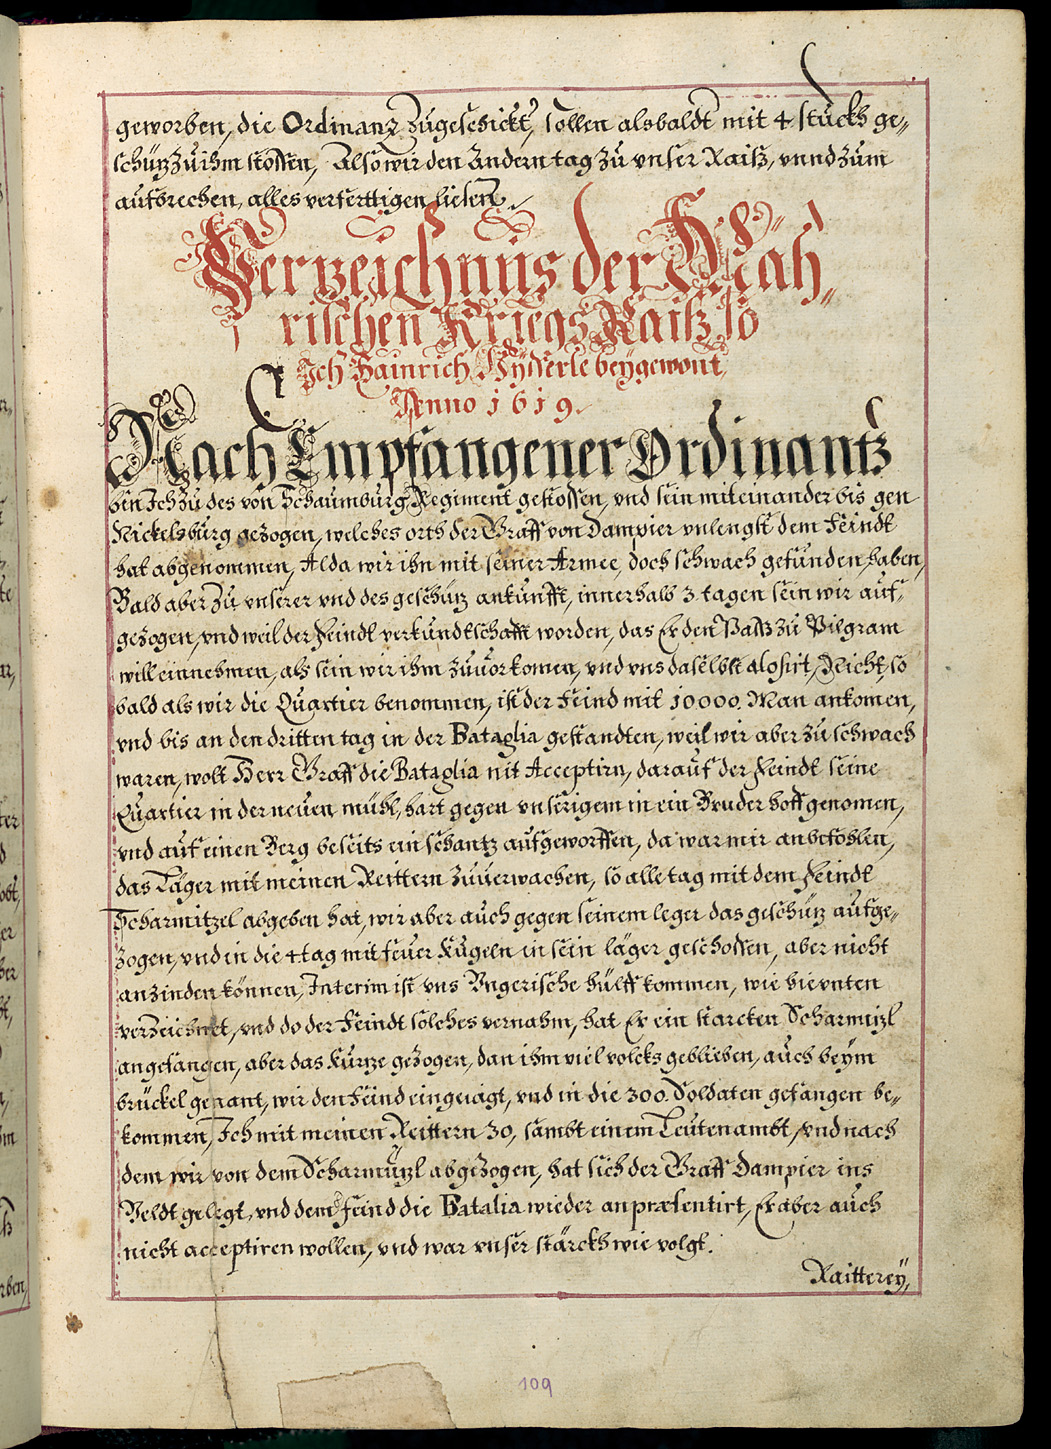 geworben, die Ordinanz zugeschickt, sollen alsbaldt mit 4 stuckh ge„
schütz zu ihm stossen, Also wir den Andern tag zu vnser Raiß, vnnd zum
aufbrechen, alles verferttigen liesen.
Verzeichnus der Mäh„
rischen Kriegs Raiß so
Ich Hainrich Hysserle beygewont,
Anno 1619.
Nach Empfangener Ordinantz
bin Ich zu des von Schaumburg Regiment gestossen, vnd sein miteinander bis gen
Nickelsburg gezogen, welches orth der Graff von Dampier vnlengst dem Feindt
hat abgenommen, Alda wir ihn mit seiner Armee, doch schwach gefunden haben,
Bald aber zu vnserer vnd des geschütz ankunfft, innerhalb 3 tagen sein wir auf„
gezogen, vnd weil der Feindt verkundtschafft worden, das Er den Paß zu Pilgram
will einnehmen, als sein wir ihm zuuorkomen, vnd vns daselbst alosirt, Nicht so
bald als wir die Quartier benommen, ist der Feind mit 10000. Man ankomen,
vnd bis an den dritten tag in der Bataglia gestandten, weil wir aber zu schwach
waren, wolt Herr Graff die Bataglia nit Acceptirn, darauf der Feindt seine
Quartier in der neuen mühl, hart gegen vnserigem in ein Bruder hoff genomen,
vnd auf einen Berg beseits ein schantz aufgeworffen, da war mir anbefohlen,
das Läger mit meinen Reittern zuuerwachen, so alle tag mit dem Feindt
Scharmitzel abgeben hat, wir aber auch gegen seinem leger das geschütz aufge„
zogen, vnd in die 4 tag mit feuer kugeln in sein läger geschossen, aber nicht
anzinden können, Interim ist vns Vngerische hülff kommen, wie hievnten
verzeichnet, vnd do der Feindt solches vernahm, hat Er ein starcken Scharmitzl
angefangen, aber das kurtze gezogen, dan ihm viel volcks geblieben, auch beym
brückel genant, wir den Feind eingeiagt, vnd in die 300. Soldaten gefangen be„
kommen, Ich mit meinen Reittern 30, sambt einem Leutenambt, vnd nach
dem wir von dem Scharmützl abgezogen, hat sich der Graff Dampier ins
Veldt gelegt, vnd dem feind die Batalia wieder anpræsentirt, Er aber auch
nicht acceptiren wollen, vnd war vnser stärckh wie volgt.
Raitterey,
109